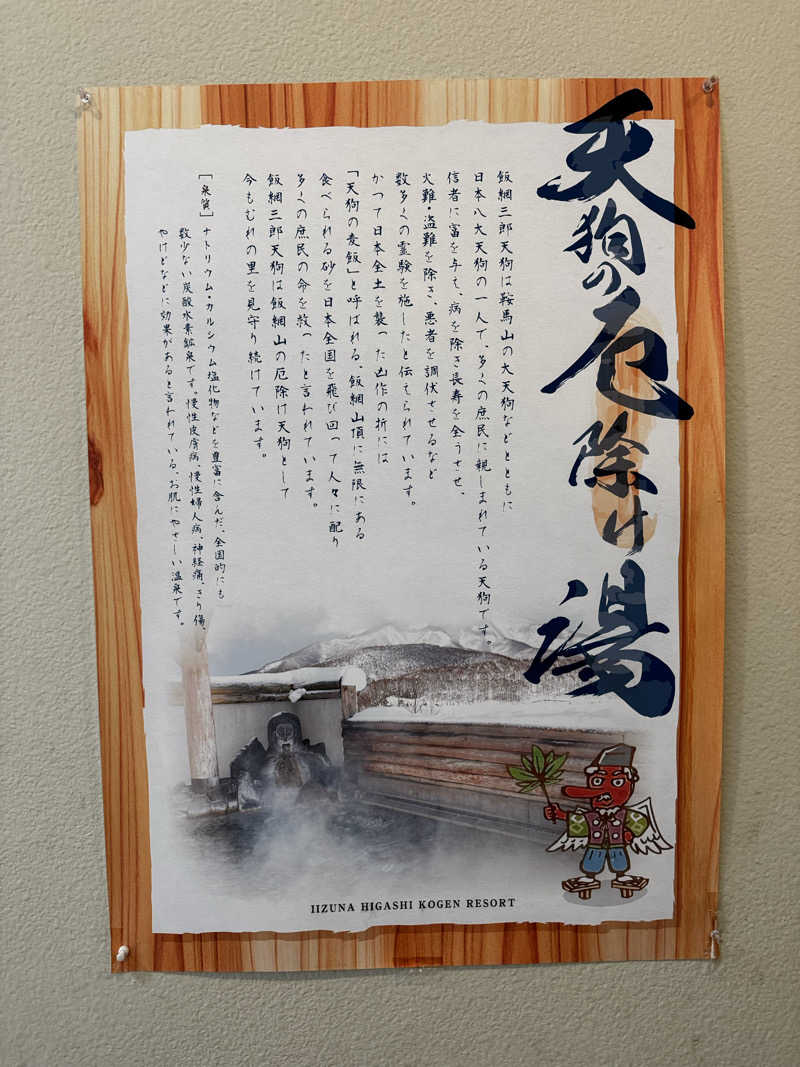 天狗の厄除け湯
飯綱三郎天狗は鞍馬山の大天狗などとともに
日本八大天狗の一人で、多くの庶民に親しまれている天狗です。
信者に富を与え、病を除き長寿を全うさせ、
火難・盗難を除き、悪者を調伏させるなど
数多くの霊験を施したと伝えられています。
かつて日本全土を襲った凶作の折には
「天狗の麦飯」と呼ばれる、飯綱山頂に無限にある
食べられる砂を日本全国を飛び回って人々に配り
多くの庶民の命を救ったと言われています。
飯綱三郎天狗は飯綱山の厄除け天狗として
今もむれの里を見守り続けています。
［泉質］ナトリウム・カルシウム塩化物などを豊富に含んだ、全国的にも
数少ない炭酸水素鉱泉です。慢性皮膚病、慢性婦人病、神経痛、きり傷、
やけどなどに効果があると言われている、お肌にやさしい温泉です。
IIZUNA HIGASHI KOGEN RESORT